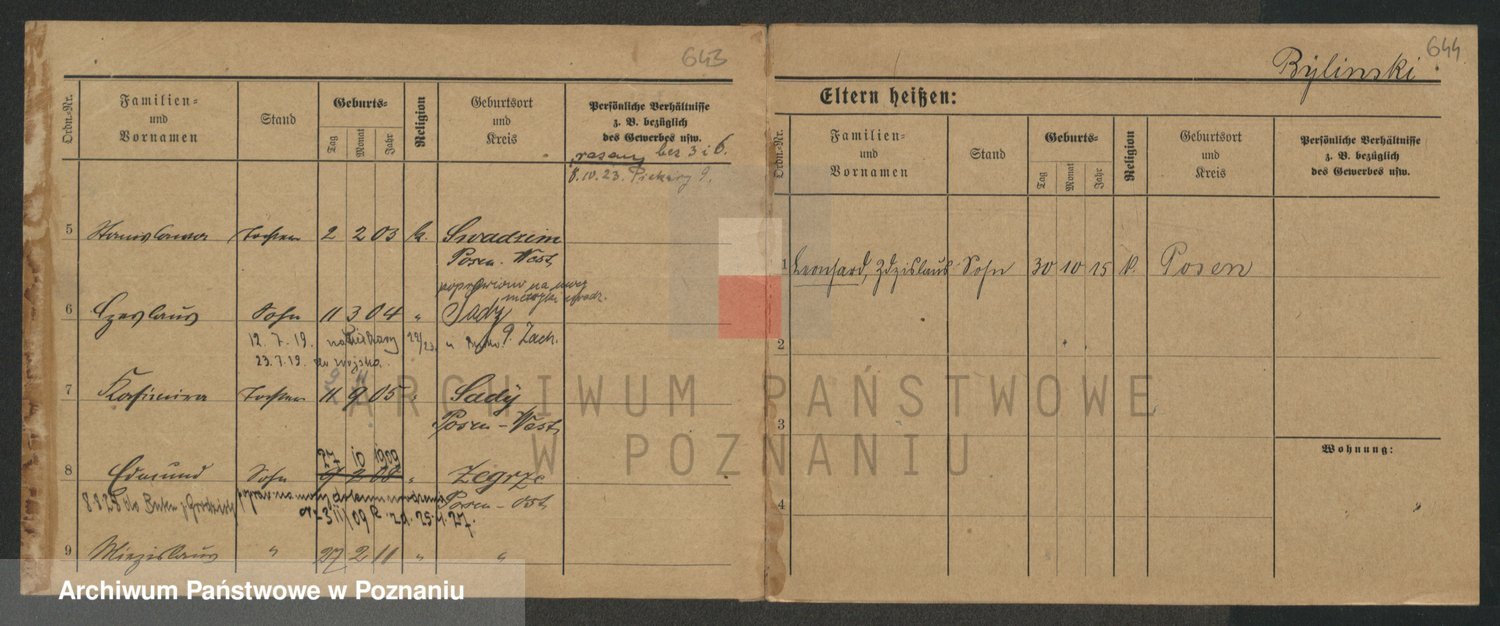 643
Ordn.-Nr.
Familien=
und
Vornamen
Stand
Geburts=
Tag
Monat
Jahr
Religion
Geburtsort
und
Kreis
Persönliche Verhältnisse
z. B. bezüglich
des Gewerbes usw.
razem bez 3 i 6.
8.10.23. Piekary 9.
5 Stanislawa Tochter 2 2 03 k. Swadzim
Posen-West
poprawiono na mocy
metryki urodz.
6 Czeslaus Sohn 11 3 04 " Sady
12.7.19. na Piekary 9. Zach.
23.7.19. do wojska.
7 Kasimira Tochter 11 9 05 " Sady
Posen-West
27 10 1909
8 Edmund Sohn 9 2 08 " Zegrze
Posen-Ost
8 8 28 do Buku, Grodzisk
25.4.27.
9 Miezislaus " 27 2 11 " "
644
Bylinski
Eltern heißen:
Ordn.-Nr.
Familien=
und
Vornamen
Stand
Geburts=
Tag
Monat
Jahr
Religion
Geburtsort
und
Kreis
Persönliche Verhältnisse
z. B. bezüglich
des Gewerbes usw.
1 Leonhard, Zdzislaus Sohn 30 10 15 k. Posen
2
3
Wohnung:
4
ARCHIWUM PAŃSTWOWE
W POZNANIU
Archiwum Państwowe w Poznaniu